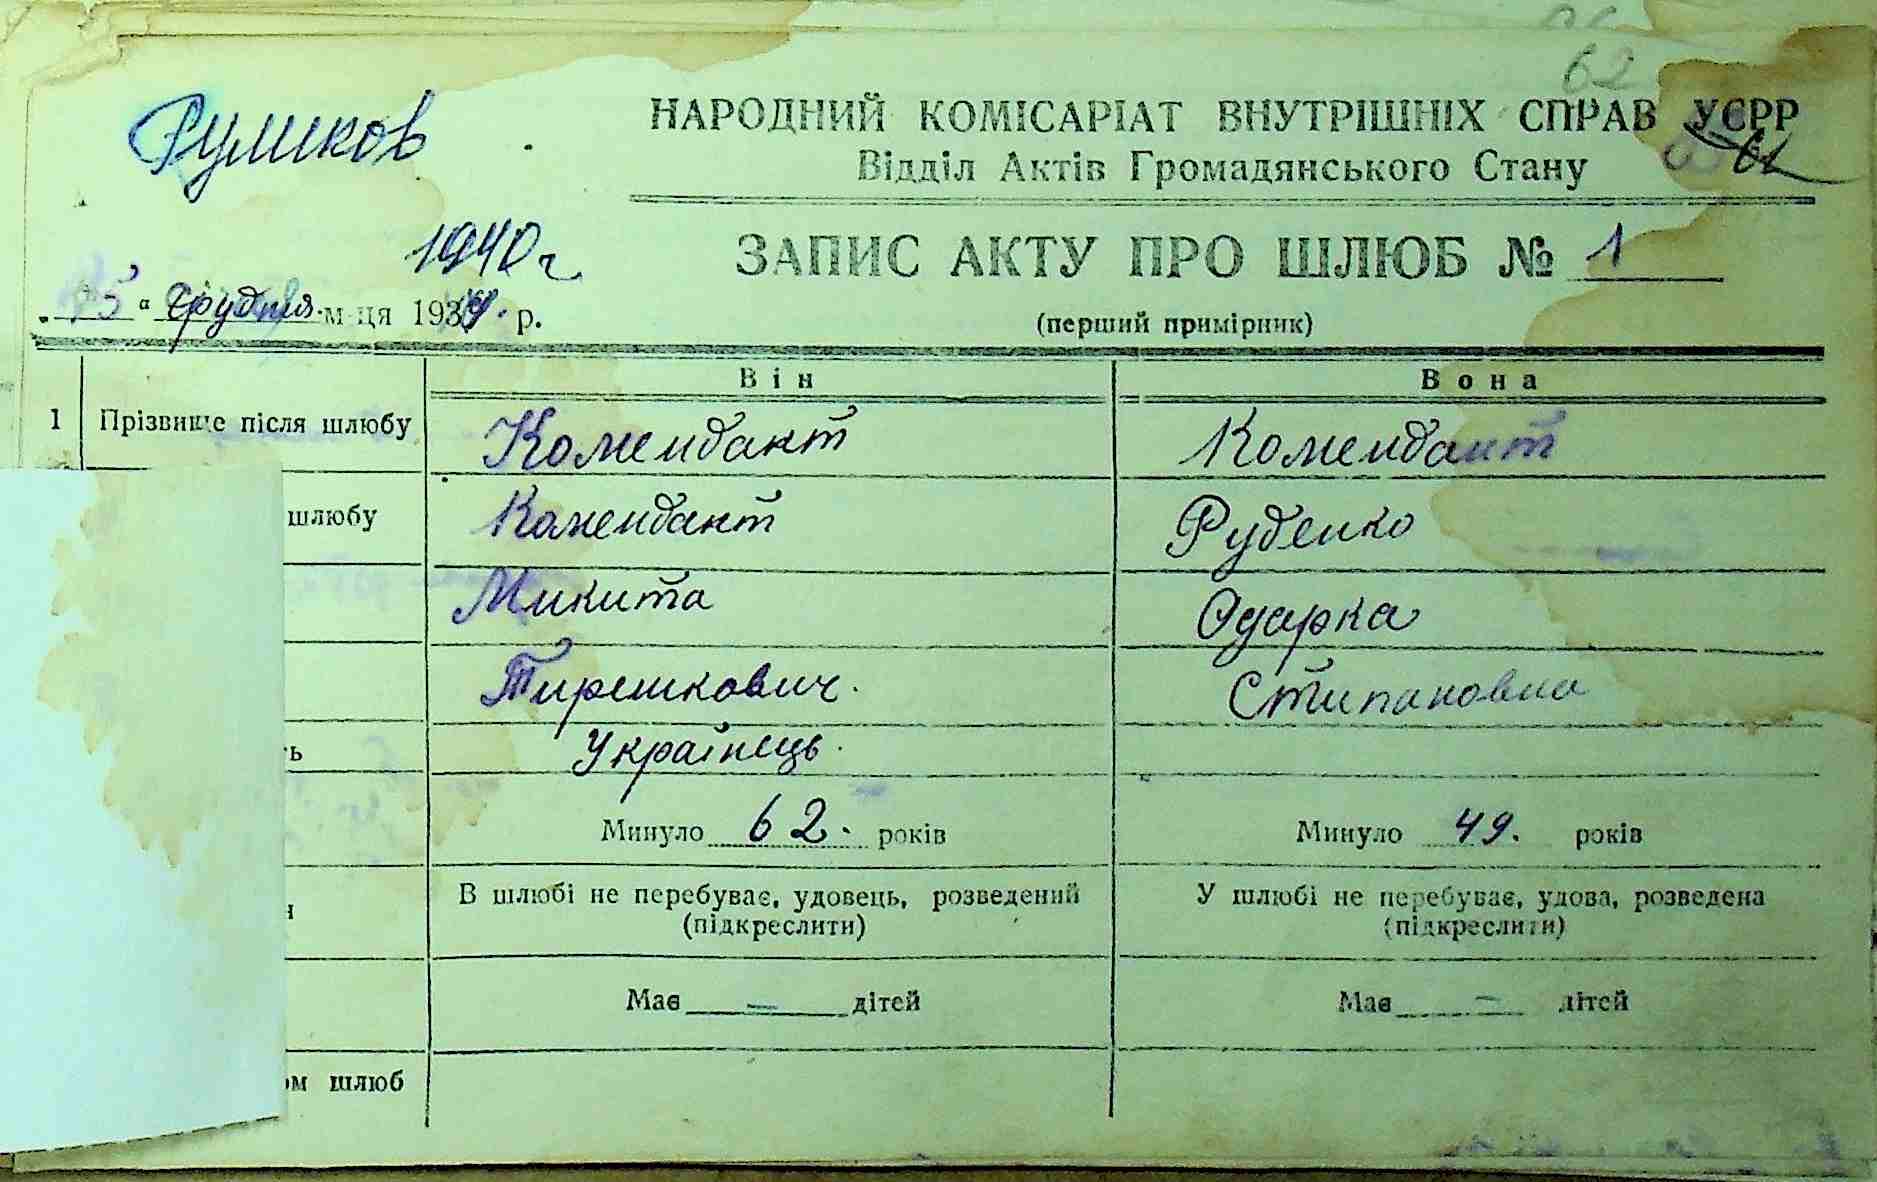 62
Румиков
НАРОДНИЙ КОМІСАРІАТ ВНУТРІШНІХ СПРАВ УСРР
Відділ Актів Громадянського Стану
61
1940 г
ЗАПИС АКТУ ПРО ШЛЮБ № 1
„15“ Грудня м-ця 1939 р.
(перший примірник)
Він Вона
1 Прізвище після шлюбу Комендант Комендант
шлюбу Комендант Руденко
Микита Одарка
Тирешкович. Стипановна
ть Українець.
Минуло 62. років Минуло 49. років
В шлюбі не перебуває, удовець, розведений У шлюбі не перебуває, удова, розведена
(підкреслити) (підкреслити)
Має — дітей Має — дітей
ом шлюб